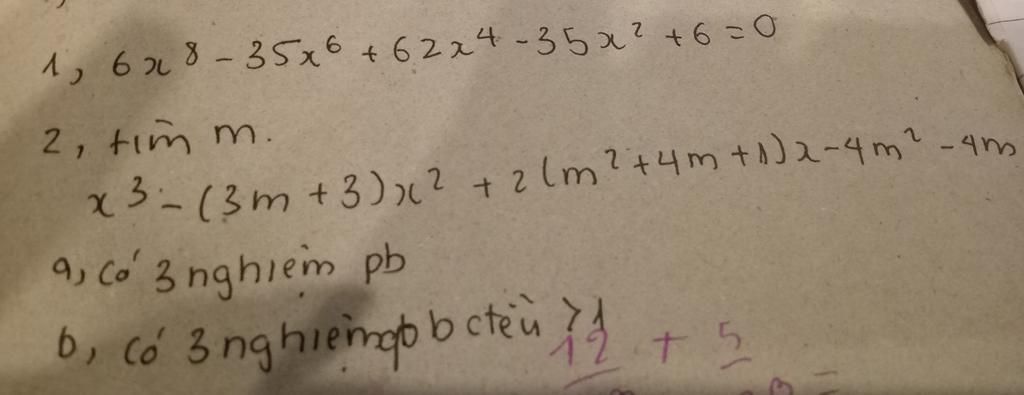 1, 6x⁸ - 35x⁶ + 62x⁴ - 35x² + 6 = 0
2, tìm m.
x³ - (3m + 3)x² + 2(m² + 4m + 1)x - 4m² - 4m
a, có 3 nghiệm pb
b, có 3 nghiệm pb đều > 1
12 + 5